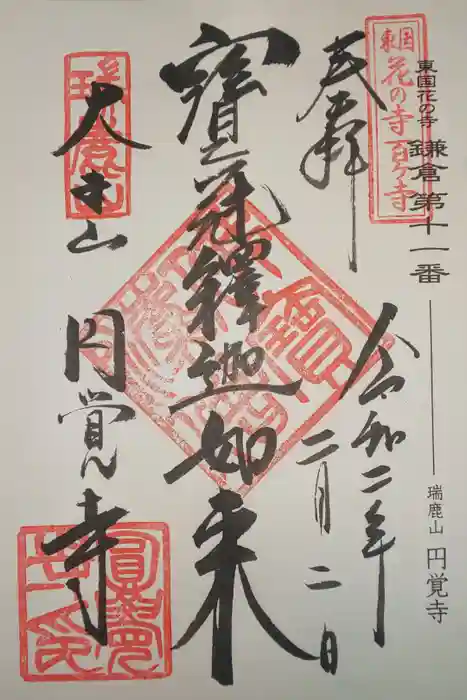 東国花の寺 鎌倉第十一番 瑞鹿山 円覚寺
東国
花の寺 百ヶ寺
奉拝
令和二年
二月二日
寶冠釋迦如来
大本山
円覚寺
瑞鹿山